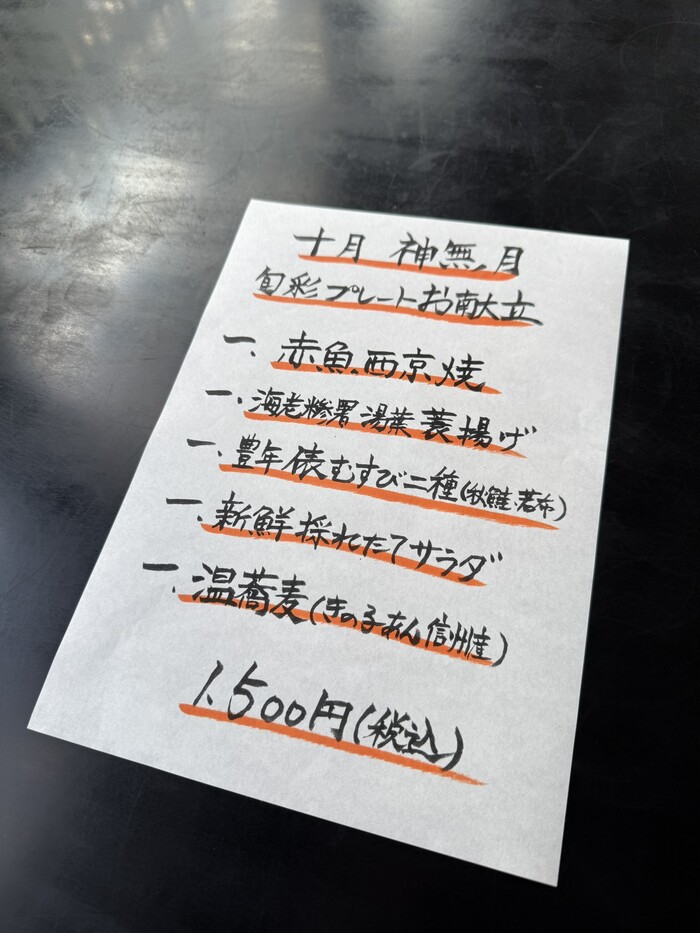 十月 神無月
旬彩プレートお献立
一、赤魚西京焼
一、海老糁薯湯葉蓑揚げ
一、豊年俵むすび二種(秋鮭、若布)
一、新鮮採れたてサラダ
一、温蕎麦(きの子あん信州産)
1,500円(税込)